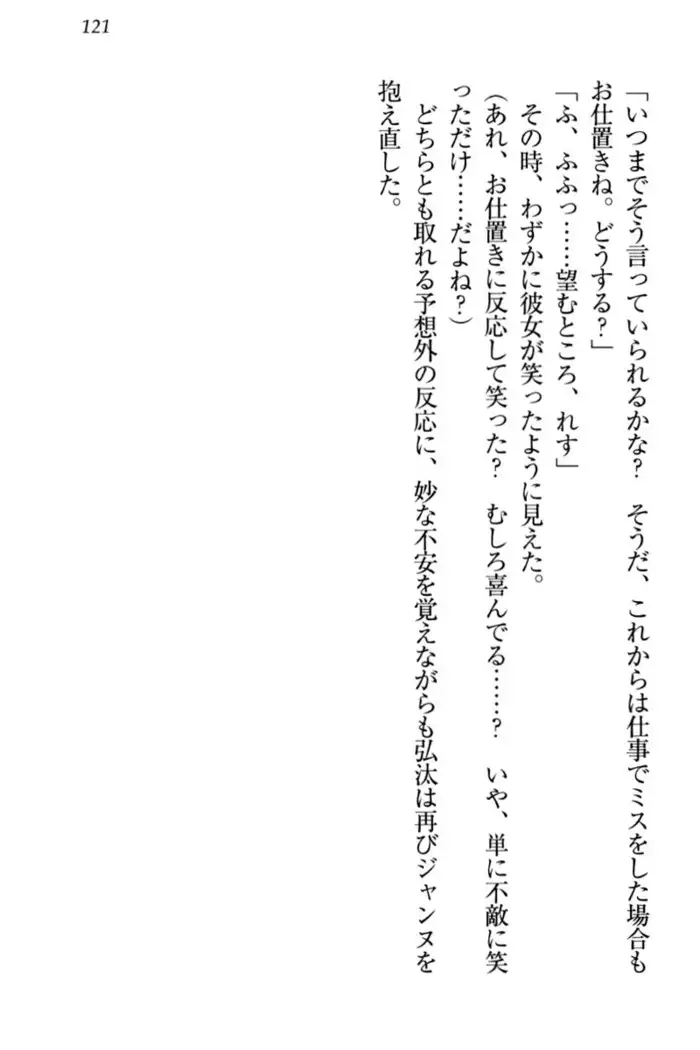 121
「いつまでそう言っていられるかな？　そうだ、これからは仕事でミスをした場合も
お仕置きね。どうする？」
「ふ、ふふっ……望むところ、れす」
　その時、わずかに彼女が笑ったように見えた。
（あれ、お仕置きに反応して笑った？　むしろ喜んでる……？　いや、単に不敵に笑
っただけ……だよね？）
　どちらとも取れる予想外の反応に、妙な不安を覚えながらも弘汰は再びジャンヌを
抱え直した。